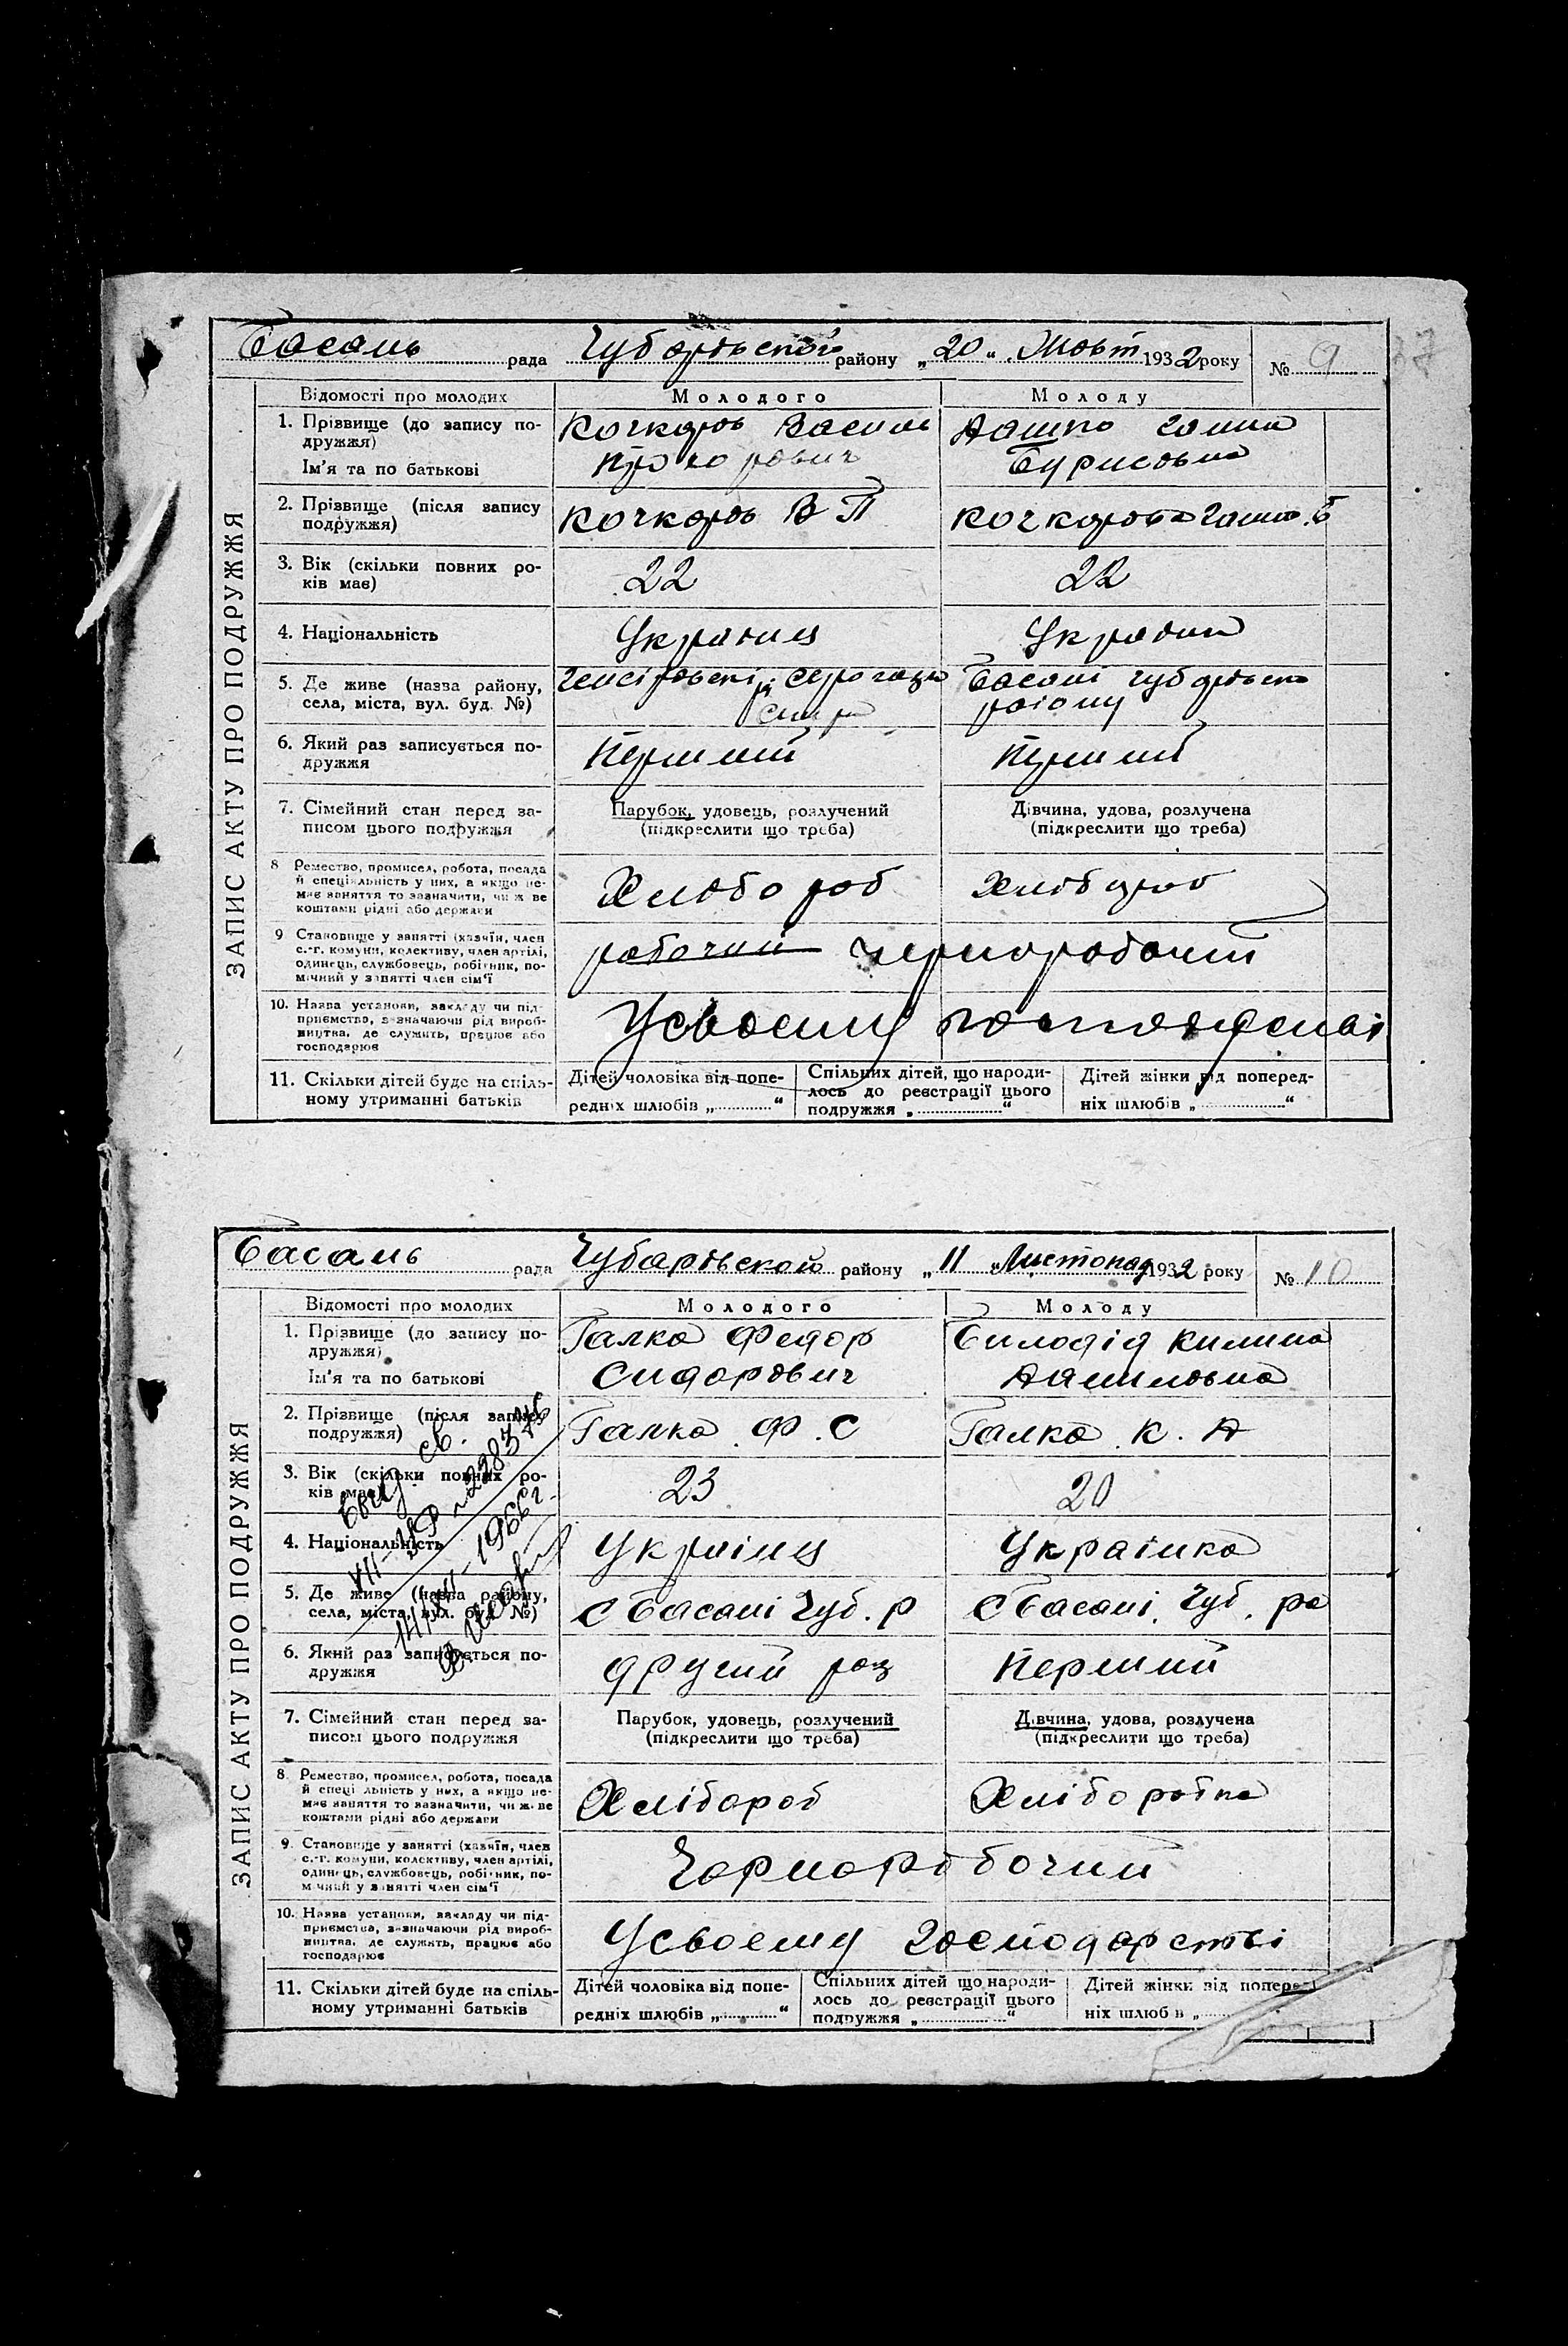 Басань рада Чубарівського району „20" Жовт 1932 року № 9
37
ЗАПИС АКТУ ПРО ПОДРУЖЖЯ
Відомості про молодих Молодого Молоду
1. Прізвище (до запису по- Кочкарів Василь
дружжя)
Ім'я та по батькові Прохорович Бурисовна
2. Прізвище (після запису Кочкарів В П Кочкарова
подружжя)
3. Вік (скільки повних ро- 22 22
ків має)
4. Національність Українц
5. Де живе (назва району, Басані Чубарівсько
села, міста, вул. буд. №) раіону
6. Який раз записується по- Перший Перший
дружжя
7. Сімейний стан перед за- Парубок, удовець, розлучений Дівчина, удова, розлучена
писом цього подружжя (підкреслити що треба) (підкреслити що треба)
8 Ремество, промисел, робота, посада Хлібороб Хлібороб
й спеціяльність у них, а якщо не-
має заняття то зазначити, чи ж ве
коштами рідні або держави
9 Становище у занятті (хазяїн, член рабочий чернорабочий
с.-г. комуни, колективу, член артілі,
одинець, службовець, робітник, по-
мічний у занятті член сім'ї
10. Назва установи, закладу чи під- Усвоему
приємство, зазначаючи рід вироб-
ництва, де служить, працює або
господарює
11. Скільки дітей буде на спіль- Дітей чоловіка від попе- Спільних дітей, що народи- Дітей жінки від поперед-
ному утриманні батьків редніх шлюбів „ " лось до реєстрації цього ніх шлюбів „ "
подружжя „ "
Басань рада Чубарівской району „11" Листопад 1932 року № 10
ЗАПИС АКТУ ПРО ПОДРУЖЖЯ
Відомості про молодих Молодого Молоду
1. Прізвище (до запису по- Галка Федор Билодід Килина
дружжя)
Ім'я та по батькові Сидорович
2. Прізвище (після запису Галка Ф. С Галка К. А
подружжя)
3. Вік (скільки повних ро- 23 20
ків має)
4. Національність Українц Українка
5. Де живе (назва району, С Басані Чуб. р С Басані Чуб. ра
села, міста, вул. буд. №)
6. Який раз записується по- другий раз Перший
дружжя
7. Сімейний стан перед за- Парубок, удовець, розлучений Дівчина, удова, розлучена
писом цього подружжя (підкреслити що треба) (підкреслити що треба)
8. Ремество, промисел, робота, посада Хлібороб Хліборобка
й спеціяльність у них, а якщо не-
має заняття то зазначити, чи ж ве
коштами рідні або держави
9. Становище у занятті (хазяїн, член Чорнорабочий
с.-г. комуни, колективу, член артілі,
одинець, службовець, робітник, по-
мічний у занятті член сім'ї
10. Назва установи, закладу чи під- Усвоему господарстві
приємства, зазначаючи рід вироб-
ництва, де служить, працює або
господарює
11. Скільки дітей буде на спіль- Дітей чоловіка від попе- Спільних дітей що народи- Дітей жінки від поперед
ному утриманні батьків редніх шлюбів „ " лось до реєстрації цього ніх шлюбів „
подружжя „ "